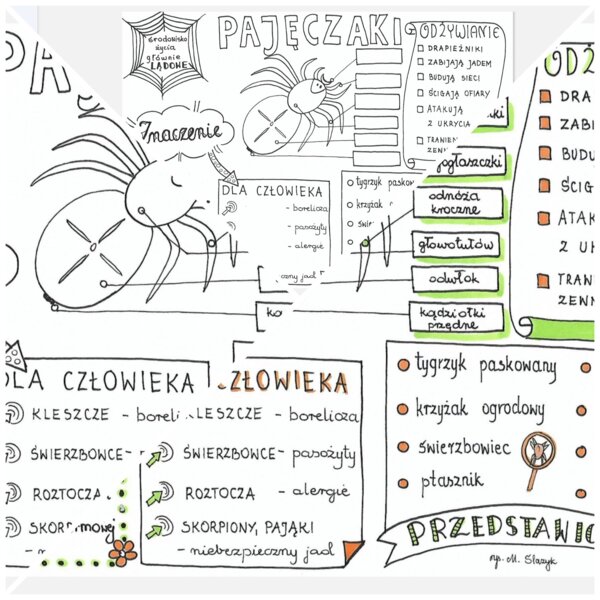 PAJĘCZAKI
środowisko
życia
głównie
LĄDOWE
ODŻYWIANIE
DRAPIEŻNIKI
ZABIJAJĄ JADEM
BUDUJĄ SIECI
ŚCIGAJĄ OFIARY
ATAKUJĄ
Z UKRYCIA
Znaczenie
DLA CZŁOWIEKA
- borelioza
- pasożyty
- alergie
tygrzyk pasko
krzyżak
ogłaszczki
odnóża
kroczne
głowotułów
odwłok
kądziołki
przędne
ODŻ
DRA
ZABI
BUDU
ŚCIG
ATAK
Z UK
TRAN
ZEWN
DLA CZŁOWIEKA
KLESZCZE - boreli
ŚWIERZBOWCE -
ROZTOCZA
SKOR
ZŁOWIEKA
LESZCZE - borelioza
ŚWIERZBOWCE - pasożyty
ROZTOCZA - alergie
SKORPIONY, PAJĄKI
- niebezpieczny jad
tygrzyk paskowany
krzyżak ogrodowy
świerzbowiec
ptasznik
PRZEDSTAWIC
rys. M. Ślązyk